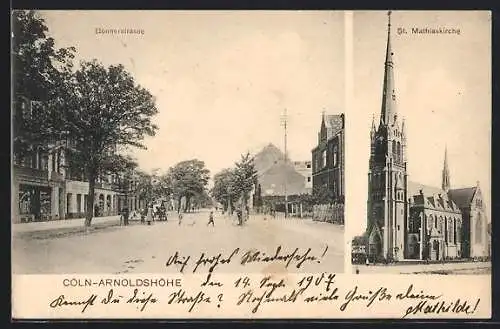 Bonnerstrasse
St. Mathiaskirche
Auf frohes Wiedersehn!
CÖLN-ARNOLDSHÖHE den 14. Sept. 1907
Kennst Du diese Strasse? Nochmals viele Grüße deine
Mathilde!